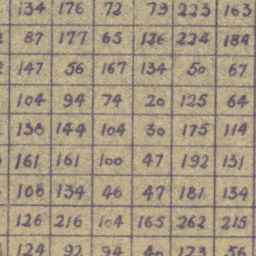 134 176 72 79 223 163
87 177 65 126 224 184
147 56 167 134 50 67
104 94 74 20 125 64
138 144 104 30 175 114
161 161 100 47 192 131
108 134 46 47 181 134
126 216 104 165 262 215
124 92 94 40 123 56